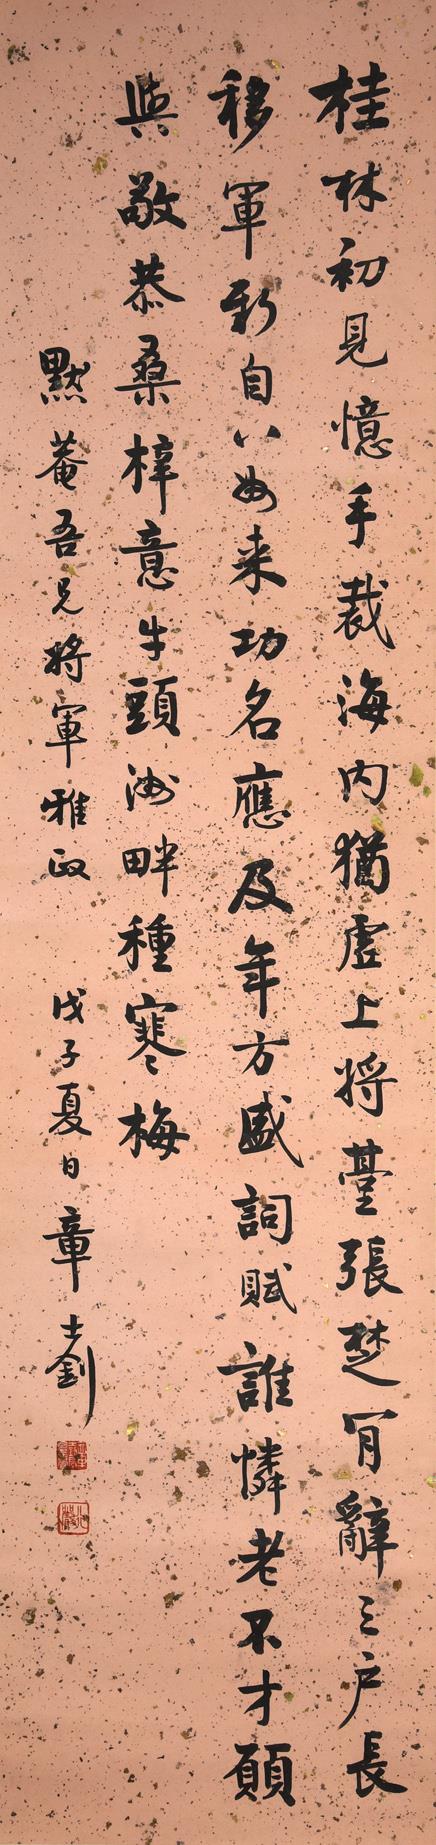 桂林初見憶手裁海内猶虛上將臺張楚肯辭三户長
移軍新自八公来功名應及年方盛詞賦誰憐老不才願
與敬恭桑梓意牛頭洲畔種寒梅
默菴吾兄將軍雅政
戊子夏日章士釗